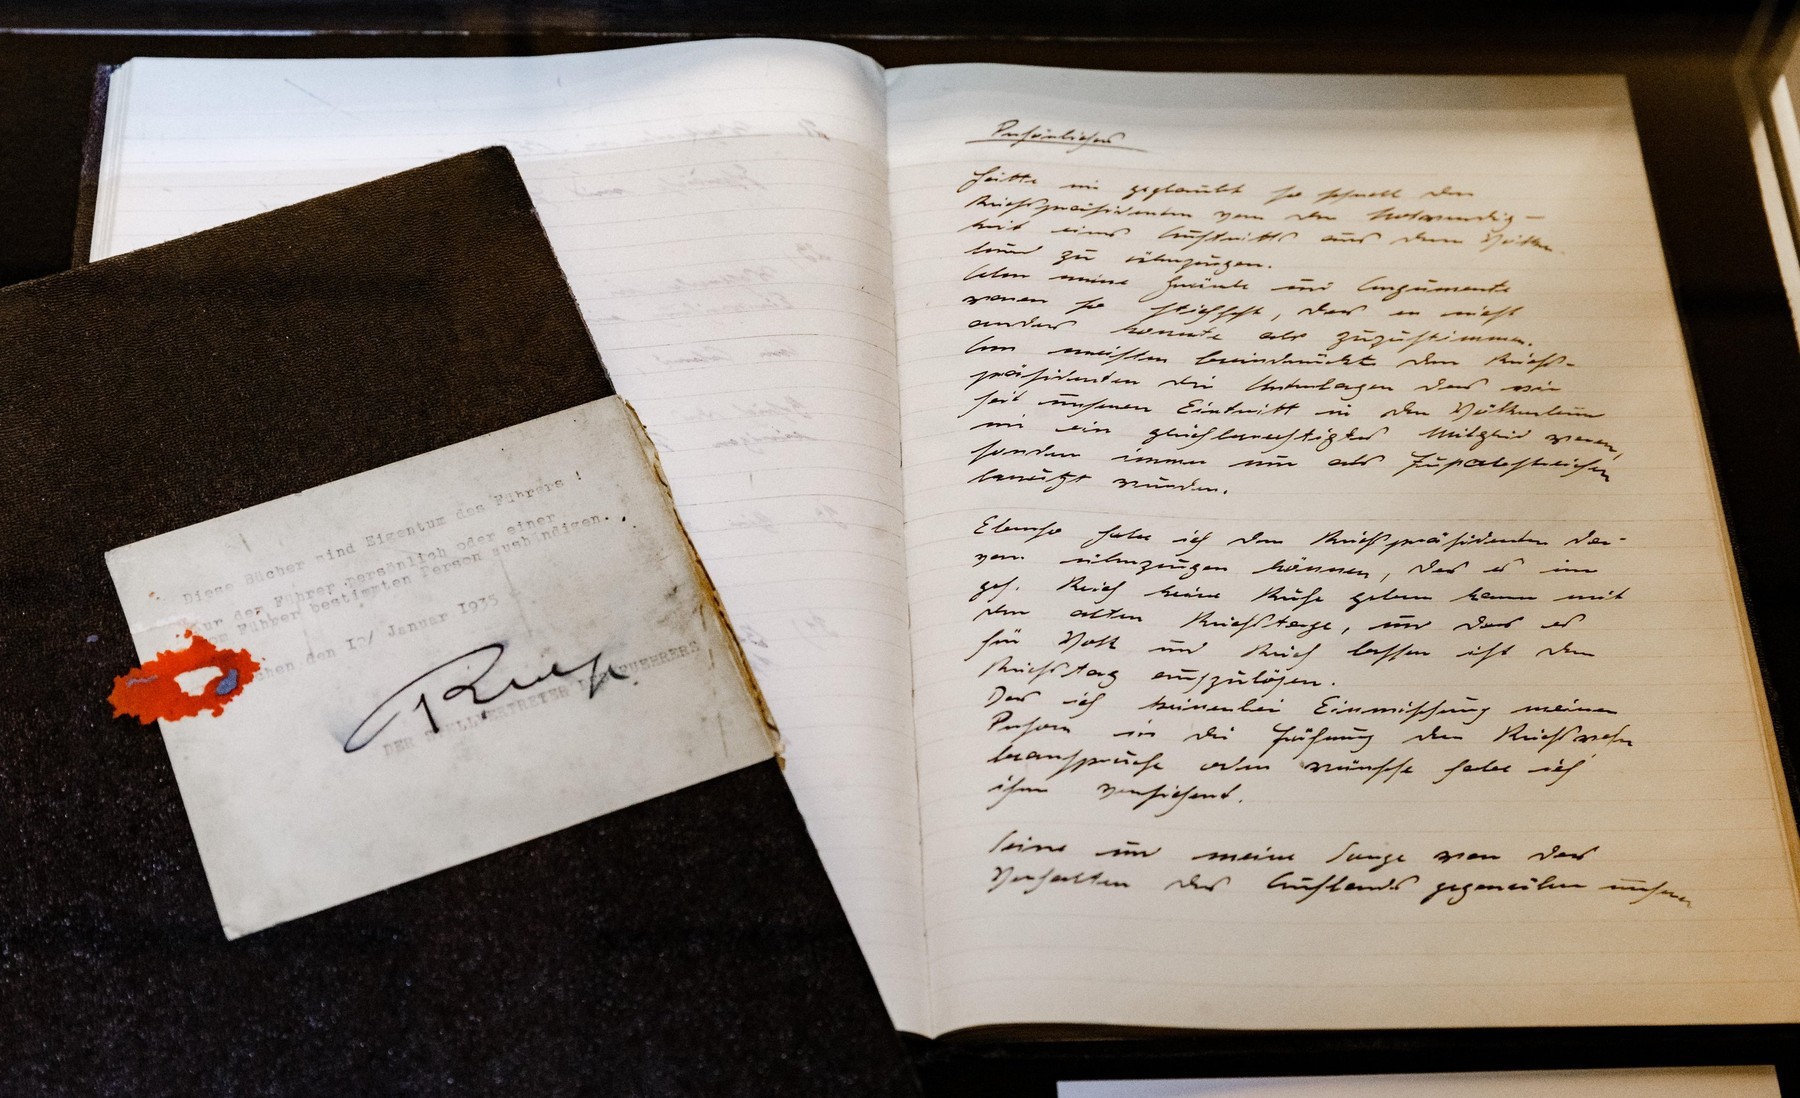 Diese Bücher sind Eigentum des Führers !
Nur dem Führer persönlich oder einer
vom Führer bestimmten Person aushändigen.
den 10/ Januar 1935
DER STELLVERTRETER DES FUEHRERS
Persönliches
Hätte nie geglaubt so schnell den
Reichspräsidenten von der Notwendig-
keit eines Austritts aus dem Völker
bund zu überzeugen.
Aber meine Gründe und Argumente
waren so stichhft, das er nicht
anders konnte als zuzustimmen.
Am meisten beeindruckte den Reichs-
präsidenten die Unterlagen das wir
seit unseren Eintritt in den Völkerbund
nie ein gleichberechtigtes Mitglied waren,
sondern immer nur als
benützt wurden.
Ebenso habe ich den Reichspräsidenten da-
von überzeugen können, das es im
ges. Reich keine Ruhe geben kann mit
den alten Reichstage, und das es
für Volk und Reich besser ist den
Reichstag aufzulösen.
Das ich keinerlei Einmischung meiner
Person in die Führung der Reichswehr
beanspruche oder wünsche habe ich
ihm versichert.
Seine und meine Sorge war das
Verhalten des Auslands gegenüber unserer